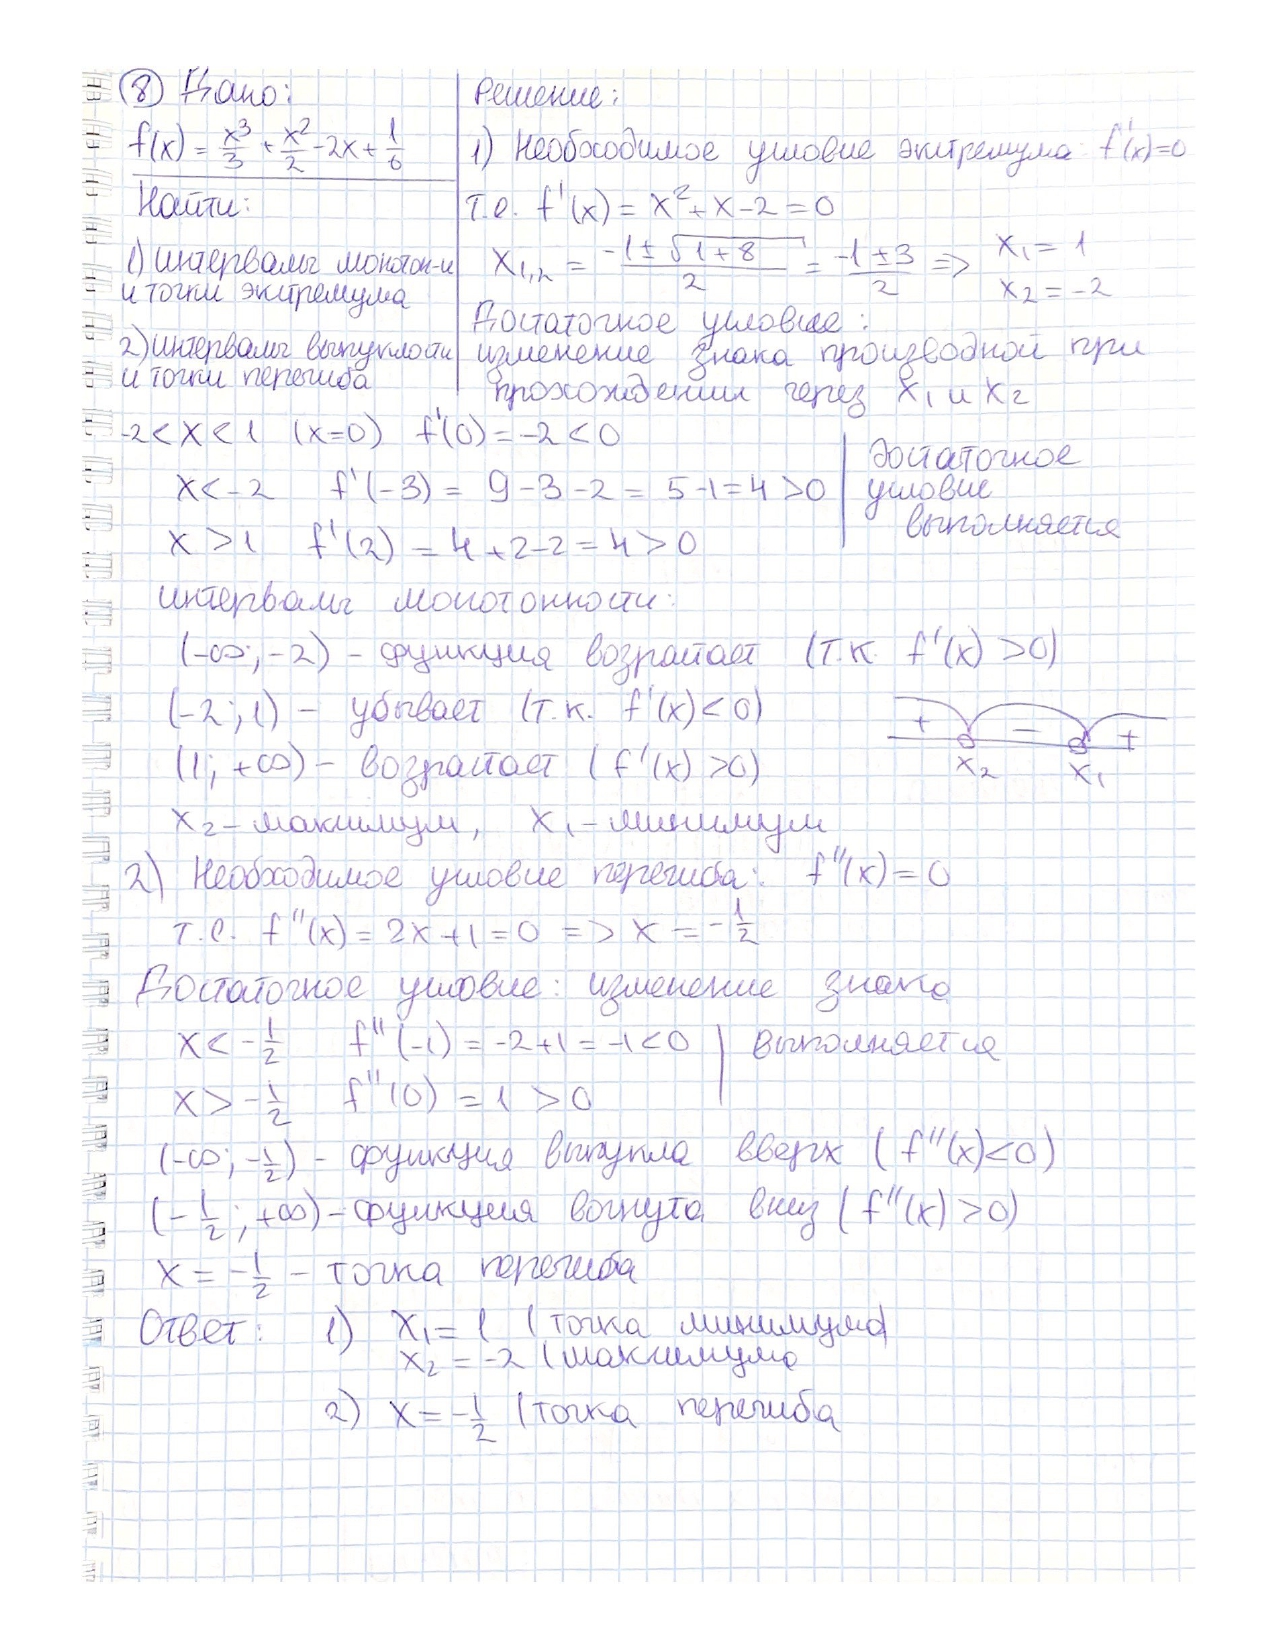 (8) Дано:
f(x) = x³/3 + x²/2 - 2x + 1/6
Найти:
1) интервалы монотон-и
и точки экстремума
2) интервалы выпуклости
и точки перегиба
Решение:
1) Необходимое условие экстремума f'(x)=0
т.е. f'(x) = x² + x - 2 = 0
x₁,₂ = (-1 ± √(1+8))/2 = (-1 ± 3)/2 => x₁ = 1
x₂ = -2
Достаточное условие:
изменение знака производной при
прохождении через x₁ и x₂
-2 < x < 1 (x=0) f'(0) = -2 < 0
x < -2 f'(-3) = 9 - 3 - 2 = 5 - 1 = 4 > 0
x > 1 f'(2) = 4 + 2 - 2 = 4 > 0
Достаточное
условие
выполняется
интервалы монотонности:
(-∞; -2) - функция возрастает (т.к. f'(x) > 0)
(-2; 1) - убывает (т.к. f'(x) < 0)
(1; +∞) - возрастает (f'(x) > 0)
+ - +
x₂ x₁
x₂ - максимум, x₁ - минимум
2) Необходимое условие перегиба: f''(x) = 0
т.е. f''(x) = 2x + 1 = 0 => x = -1/2
Достаточное условие: изменение знака
x < -1/2 f''(-1) = -2 + 1 = -1 < 0
x > -1/2 f''(0) = 1 > 0
выполняется
(-∞; -1/2) - функция выпукла вверх (f''(x) < 0)
(-1/2; +∞) - функция вогнута вниз (f''(x) > 0)
x = -1/2 - точка перегиба
Ответ: 1) x₁ = 1 (точка минимума)
x₂ = -2 (максимума
2) x = -1/2 (точка перегиба